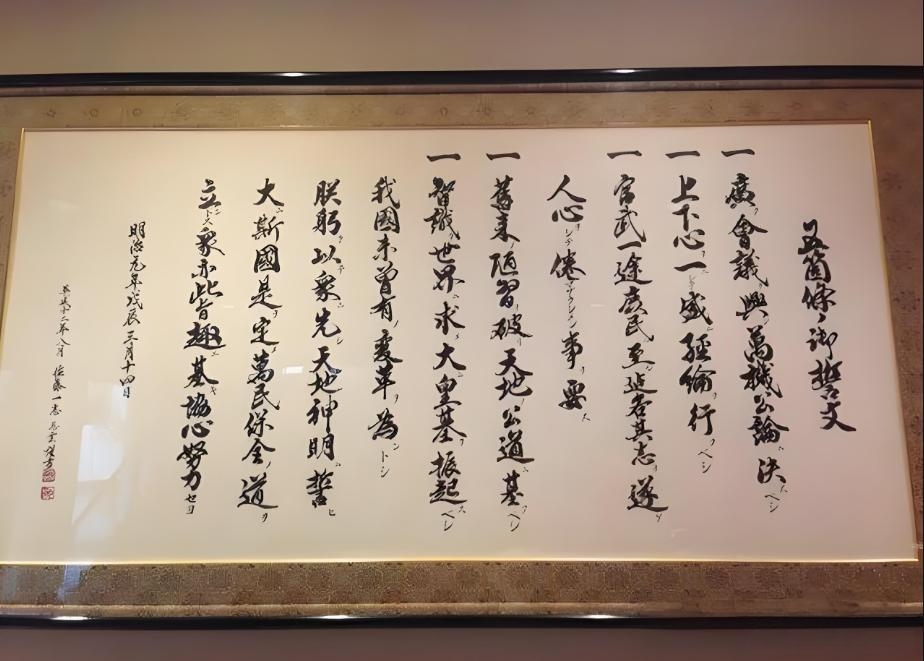 五箇條ノ御誓文
一廣ク會議ヲ興シ萬機公論ニ決スベシ
一上下心ヲ一ニシテ盛ニ經綸ヲ行フベシ
一官武一途庶民ニ至ル迄各其志ヲ遂ゲ
人心ヲシテ倦マザラシメン事ヲ要ス
一舊来ノ陋習ヲ破リ天地ノ公道ニ基クベシ
一智識ヲ世界ニ求メ大ニ皇基ヲ振起スベシ
我國未曾有ノ變革ヲ為ントシ
朕躬ヲ以テ衆ニ先ンシ天地神明ニ誓ヒ
大ニ斯國是ヲ定メ萬民保全ノ道ヲ
立ントス衆亦此旨趣ニ基キ協心努力セヨ
明治元年戊辰三月十四日
平成十二年八月 佐藤一